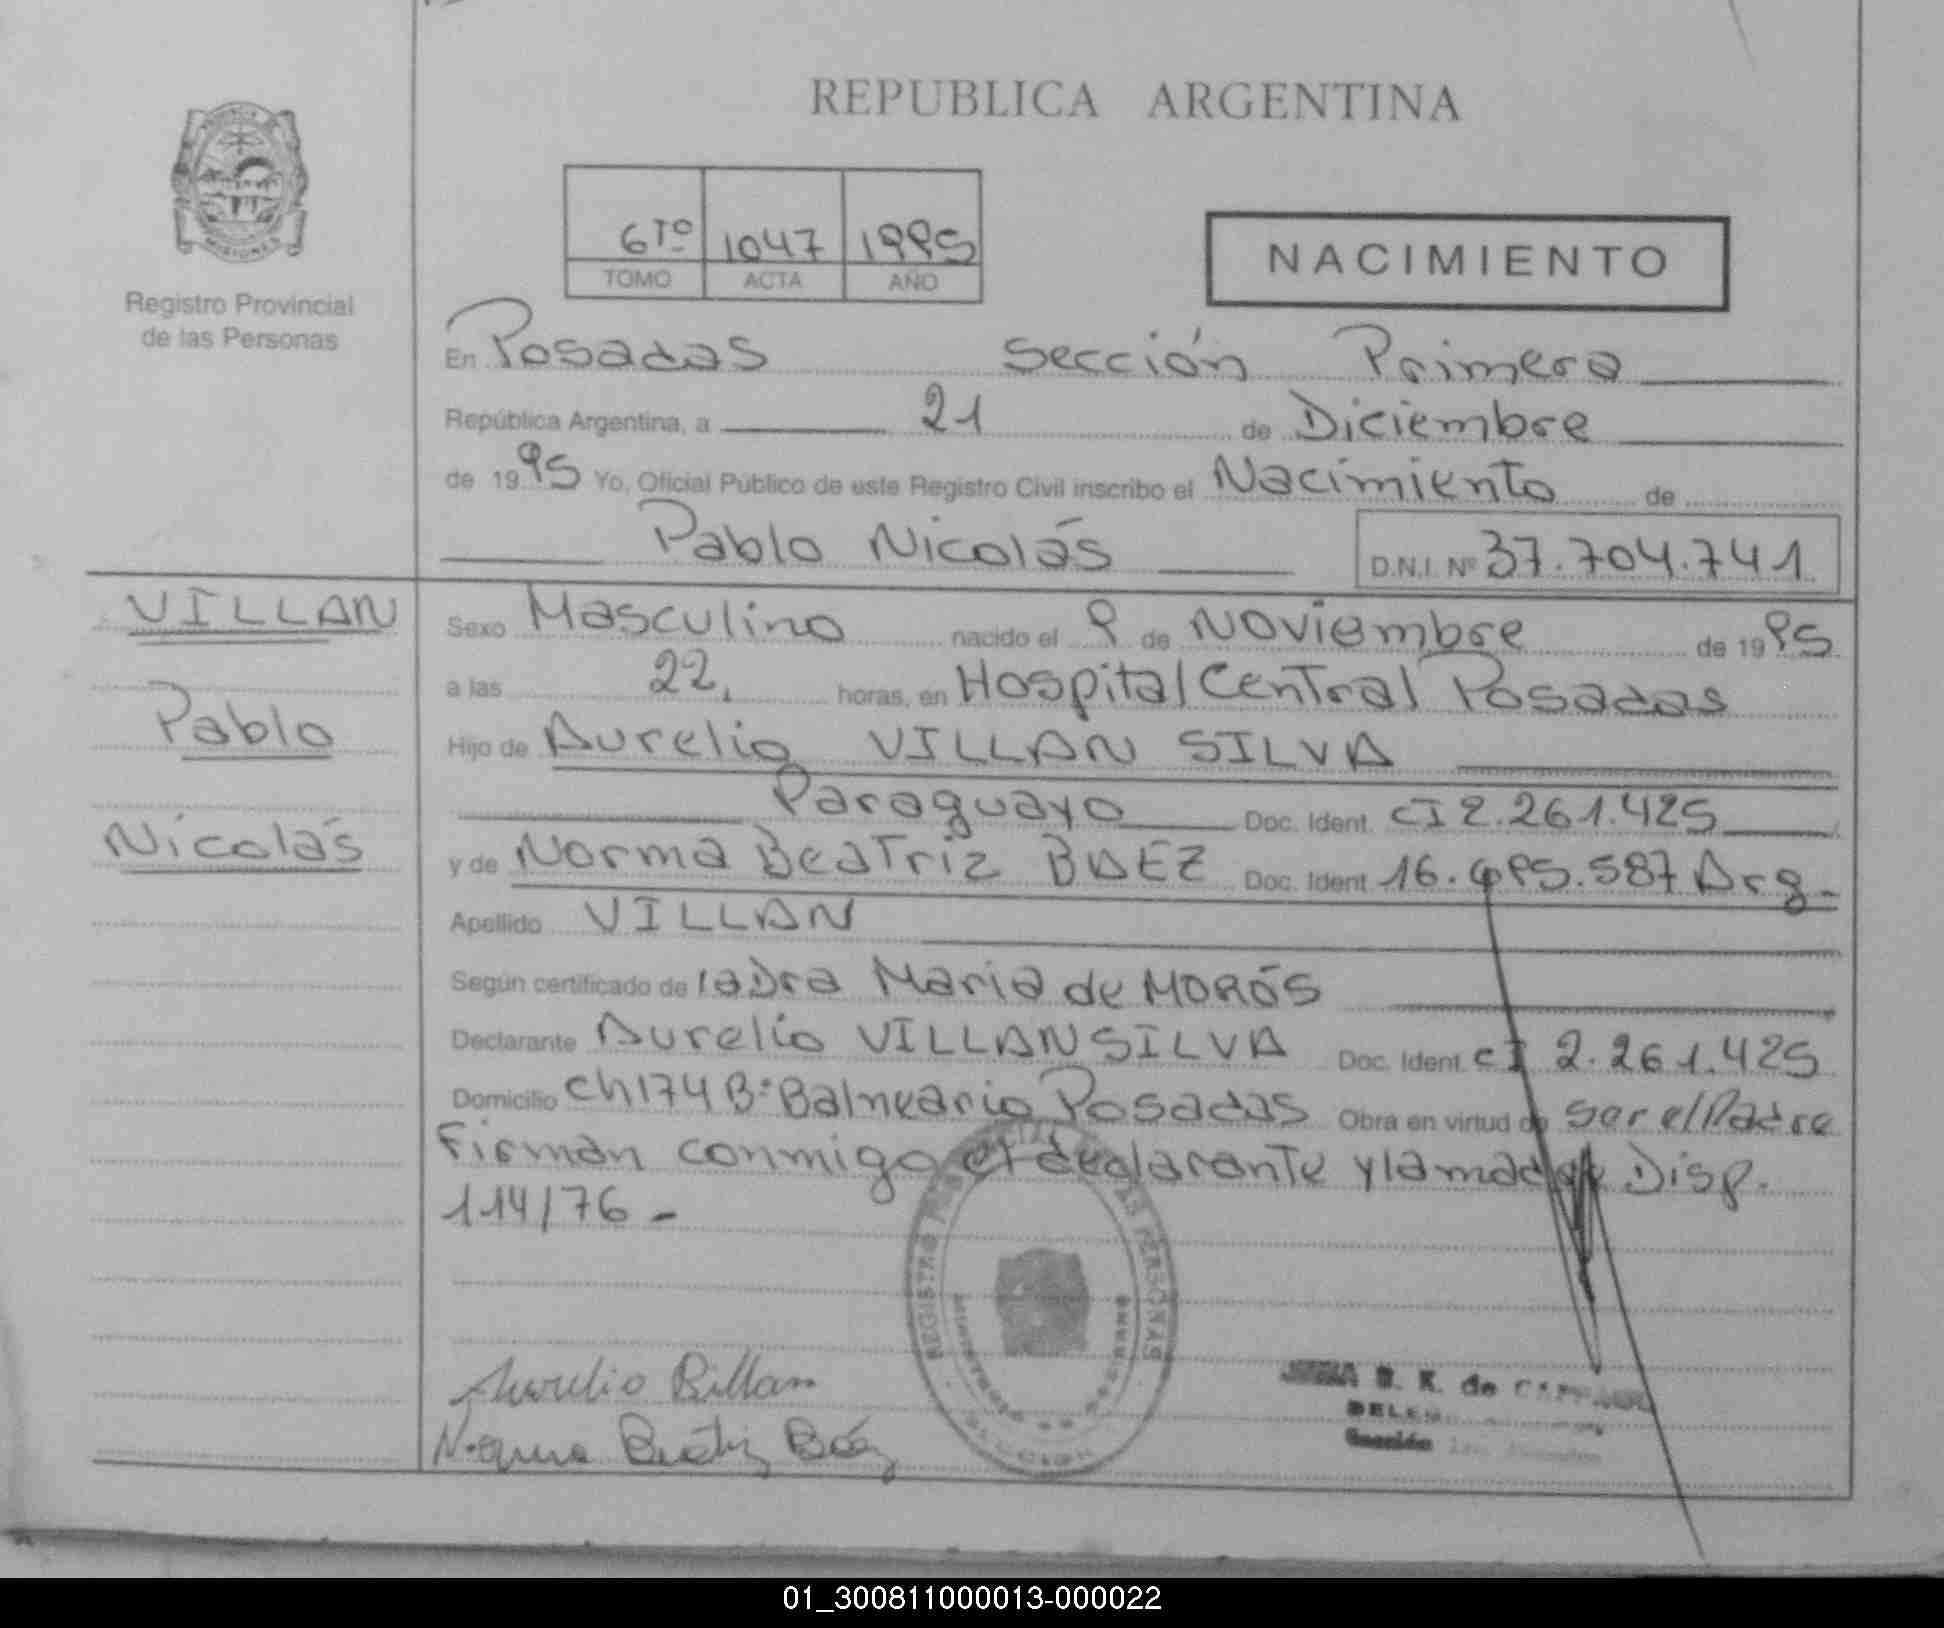 REPUBLICA ARGENTINA
Registro Provincial
de las Personas
MISIONES
6To 1047 1995
TOMO ACTA AÑO
NACIMIENTO
En Posadas Sección Primera
República Argentina, a 21 de Diciembre
de 1995 Yo, Oficial Público de este Registro Civil inscribo el Nacimiento de
Pablo Nicolás D.N.I. Nº 37.704.741
VILLAN
Pablo
Nicolás
Sexo Masculino nacido el 9 de Noviembre de 1995
a las 22, horas, en Hospital Central Posadas
Hijo de Aurelio VILLAN SILVA
Paraguayo Doc. Ident. CI 2.261.425
y de Norma Beatriz BAEZ Doc. Ident 16. 587 Arg.
Apellido VILLAN
Según certificado de la Dra Maria de MORÓS
Declarante Aurelio VILLAN SILVA Doc. Ident. CI 2.261.425
Domicilio Ch 174 Bº Balneario Posadas Obra en virtud de ser el Padre
Firman conmigo el declarante y la madre Disp.
114/76 -
REGISTRO PERSONAS
Aurelio Billan
Norma Beatriz Báez
B. K. de
Sección
01_300811000013-000022